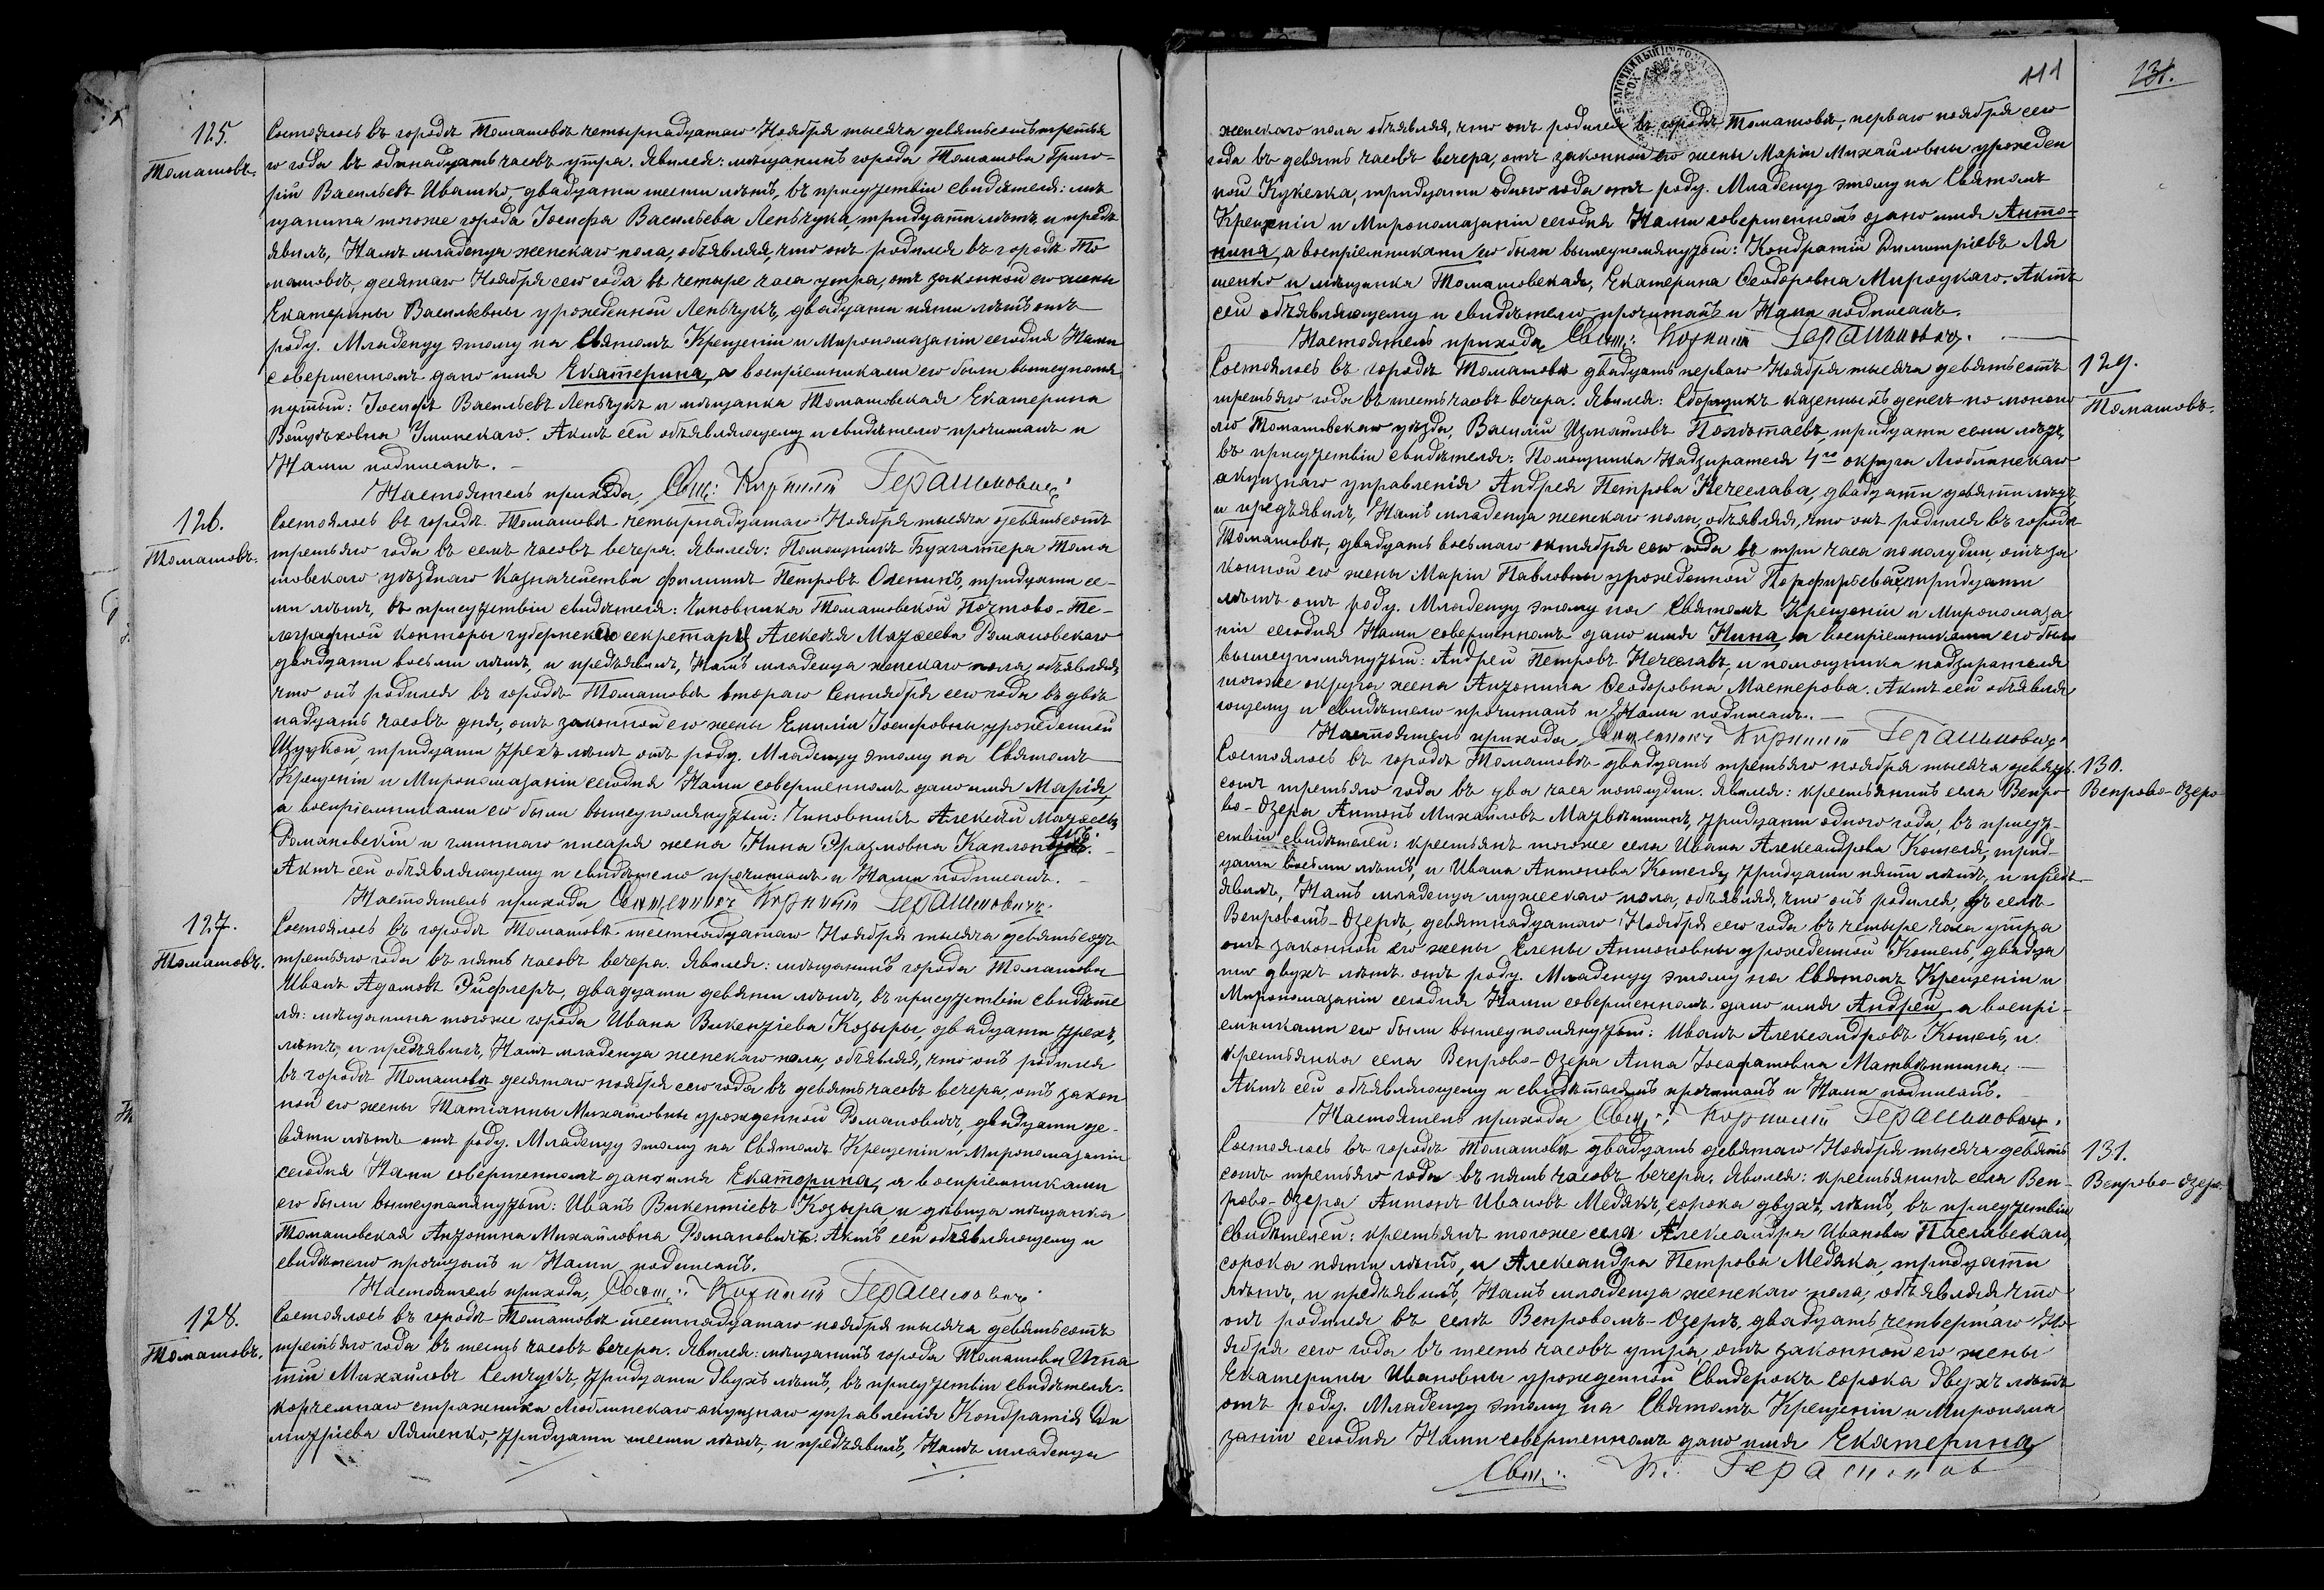 125.
Томашовъ.
Состоялось въ городѣ Томашовѣ четырнадцатаго Ноября тысяча девятьсотъ третья
го года въ одинадцать часовъ утра. Явился: мѣщанинъ города Томашова Григо-
рій Васильевъ Ивашко, двадцати шести лѣтъ, въ присутствіи свидѣтеля: мѣ
щанина тогоже города Іосифа Васильева Леньчука, тридцати лѣтъ, и предъ
явилъ, Намъ младенца женскаго пола, объявляя, что онъ родился въ городѣ То
машовѣ, десятаго Ноября сего года въ четыре часа утра, отъ законной его жены
Екатерины Васильевны урожденной Леньчукъ, двадцати пяти лѣтъ отъ
роду. Младенцу этому на Святомъ Крещеніи и Миропомазаніи сегодня Нами
совершенномъ дано имя Екатерина, а воспріемниками его были вышеупомя
нутый: Іосифъ Васильевъ Леньчукъ и мѣщанка Томашовская Екатерина
Войцѣховна. Актъ сей объявляющему и свидѣтелю прочитанъ и
Нами подписанъ.
Настоятель прихода, Свящ: Корнилій Герашкович
126.
Томашовъ.
Состоялось въ городѣ Томашовѣ четырнадцатаго Ноября тысяча девятьсотъ
третьяго года въ семь часовъ вечера. Явился: Помощникъ Бухгалтера Тома
шовскаго уѣзднаго Казначейства Филиппъ Петровъ, тридцати се-
ми лѣтъ, въ присутствіи свидѣтеля: Чиновника Томашовской Почтово-Те-
леграфной конторы губернскаго секретаря Алексѣя Романовскаго
двадцати восьми лѣтъ, и предъявилъ, Намъ младенца женскаго пола, объявляя,
что онъ родился въ городѣ Томашовѣ втораго Сентября сего года въ двѣ-
надцать часовъ дня, отъ законной его жены Емиліи Іосифовны урожденной
тридцати трехъ лѣтъ отъ роду. Младенцу этому на Святомъ
Крещеніи и Миропомазаніи сегодня Нами совершенномъ дано имя Марія,
а воспріемниками его были вышеупомянутый: Чиновникъ Алексѣй
Романовскій и гминнаго писаря жена Нина Эразмовна
Актъ сей объявляющему и свидѣтелю прочитанъ и Нами подписанъ.
Настоятель прихода Священникъ Корнилій Герашковичъ
127.
Томашовъ.
Состоялось въ городѣ Томашовѣ шестнадцатаго Ноября тысяча девятьсотъ
третьяго года въ пять часовъ вечера. Явился: мѣщанинъ города Томашова
Иванъ Адамовъ Эйфлеръ, двадцати девяти лѣтъ, въ присутствіи свидѣте
ля: мѣщанина тогоже города Ивана Викентіева Козыры, двадцати трехъ
лѣтъ, и предъявилъ, Намъ младенца женскаго пола, объявляя, что онъ родился
въ городѣ Томашовѣ десятаго ноября сего года въ девять часовъ вечера, отъ закон
ной его жены Татіанны Михайловны урожденной Романовичъ, двадцати де-
вяти лѣтъ отъ роду. Младенцу этому на Святомъ Крещеніи и Миропомазаніи
сегодня Нами совершенномъ дано имя Екатерина, а воспріемниками
его были вышеупомянутый: Иванъ Викентіевъ Козыра и дѣвица мѣщанка
Томашовская Антонина Михайловна Романовичъ. Актъ сей объявляющему и
свидѣтелю прочитанъ и Нами подписанъ.
Настоятель прихода, Свящ: Корнилій Герашкович
128.
Томашовъ.
Состоялось въ городѣ Томашовѣ шестнадцатаго ноября тысяча девятьсотъ
третьяго года въ шесть часовъ вечера. Явился: мѣщанинъ города Томашова Игна
тій Михайловъ Семчукъ, тридцати двухъ лѣтъ, въ присутствіи свидѣтеля:
корчемнаго стражника Люблинскаго акцизнаго управленія Кондратія Ди
митріева Ляшенко, тридцати шести лѣтъ, и предъявилъ, Намъ младенца
111
131.
женскаго пола объявляя, что онъ родился въ городѣ Томашовѣ, перваго ноября сего
года въ девять часовъ вечера, отъ законной его жены Маріи Михайловны урожден
ной тридцати одного года отъ роду. Младенцу этому на Святомъ
Крещеніи и Миропомазаніи сегодня Нами совершенномъ дано имя Анто-
нина, а воспріемниками его были вышеупомянутый: Кондратій Димитріевъ Ля
шенко и мѣщанка Томашовская, Екатерина Ѳеодоровна Мироцкаго. Актъ
сей объявляющему и свидѣтелю прочитанъ и Нами подписанъ.
Настоятель прихода, Свящ: Корнилій Герашкович.
129.
Томашовъ.
Состоялось въ городѣ Томашовѣ двадцать перваго Ноября тысяча девятьсотъ
третьяго года въ шесть часовъ вечера. Явился: Сборщикъ казенныхъ денегъ по монопо
ліи Томашовскаго уѣзда, Василій Измайловъ Полѣтаевъ, тридцати семи лѣтъ,
въ присутствіи свидѣтеля: Помощника Надзирателя 4го округа Люблинскаго
акцизнаго управленія Андрея Петрова Нечеслава, двадцати девяти лѣтъ,
и предъявилъ, Намъ младенца женскаго пола, объявляя, что онъ родился въ городѣ
Томашовѣ, двадцать восьмаго октября сего года въ три часа пополудни, отъ за
конной его жены Маріи Павловны урожденной тридцати
лѣтъ отъ роду. Младенцу этому на Святомъ Крещеніи и Миропомаза
ніи сегодня Нами совершенномъ дано имя Нина, а воспріемниками его были
вышеупомянутый: Андрей Петровъ Нечеславъ, и помощника надзирателя
тогоже округа жена Антонина Ѳеодоровна Мастерова. Актъ сей объявля
ющему и свидѣтелю прочитанъ и Нами подписанъ.
Настоятель прихода Священникъ Корнилій Герашкович
130.
Венрово-Озеро
Состоялось въ городѣ Томашовѣ двадцать третьяго ноября тысяча девять
сотъ третьяго года въ два часа пополудни. Явился: крестьянинъ села Венро-
во-Озера Антонъ Михайловъ тридцати одного года, въ присут-
ствіи свидѣтелей: крестьянъ тогоже села Ивана Александрова Кошеля, трид-
цати восьми лѣтъ, и Ивана Антонова Кошеля, тридцати пяти лѣтъ, и предъ
явилъ, Намъ младенца мужескаго пола, объявляя, что онъ родился, въ селѣ
Венровомъ-Озерѣ, девятнадцатаго Ноября сего года въ четыре часа утра
отъ законной его жены Елены Антоновны урожденной Кошель, двадца
ти двухъ лѣтъ отъ роду. Младенцу этому на Святомъ Крещеніи и
Миропомазаніи сегодня Нами совершенномъ дано имя Андрей, а воспрі-
емниками его были вышеупомянутый: Иванъ Александровъ Кошель, и
крестьянка села Венрово-Озера Анна Іосафатовна
Актъ сей объявляющему и свидѣтелямъ прочитанъ и Нами подписанъ.
Настоятель прихода Свящ: Корнилій Герашкович.
131.
Венрово-Озеро
Состоялось въ городѣ Томашовѣ двадцать девятаго Ноября тысяча девять
сотъ третьяго года въ пять часовъ вечера. Явился: крестьянинъ села Вен-
рово-Озера Антонъ Ивановъ Медякъ, сорока двухъ лѣтъ, въ присутствіи
свидѣтелей: крестьянъ тогоже села Александра Иванова Паславскаго,
сорока пяти лѣтъ, и Александра Петрова Медяка, тридцати
лѣтъ, и предъявилъ, Намъ младенца женскаго пола, объявляя, что
онъ родился въ селѣ Венровомъ-Озерѣ, двадцать четвертаго Но-
ября сего года въ шесть часовъ утра, отъ законной его жены
Екатерины Ивановны урожденной Свидерокъ сорока двухъ лѣтъ
отъ роду. Младенцу этому на Святомъ Крещеніи и Миропома
заніи сегодня Нами совершенномъ дано имя Екатерина,
Свящ: К. Герашков